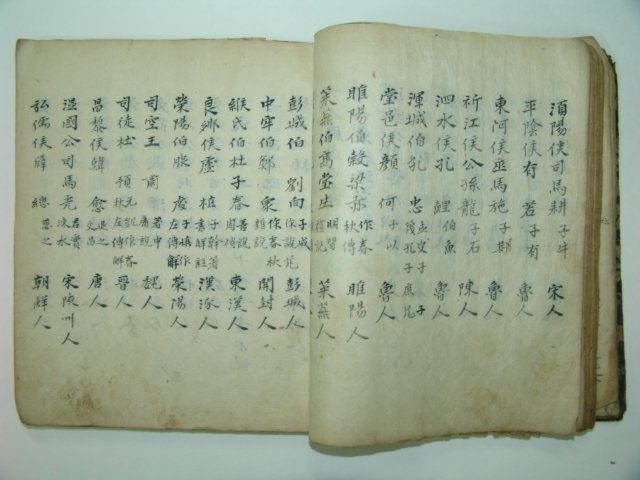 湏陽侯司馬耕 子牛 宋人
平陰侯有 若 子有 魯人
東阿侯巫馬施 子期 魯人
祈江侯公孫龍 子石 陳人
泗水侯孔 鯉 伯魚 魯人
渾城伯孔 忠
堂邑侯顔 何 魯人
睢陽伯穀梁赤 作春秋傳 睢陽人
萊蕪伯髙堂生 萊蕪人
彭城伯 劉向 子政 彭城人
中牢伯鄭 衆 開封人
緱氏伯杜子春 東漢人
良鄉侯盧植 子幹 漢涿人
榮陽伯服 虔 左傳解 榮陽人
司空王 肅 魏人
司徒杜 預 元凱作春秋左傳解 晋人
昌黎侯韓 愈 退之 文公 唐人
温國公司馬光 君實 涑水 宋陝州人
弘儒侯薛 聰 朝鮮人